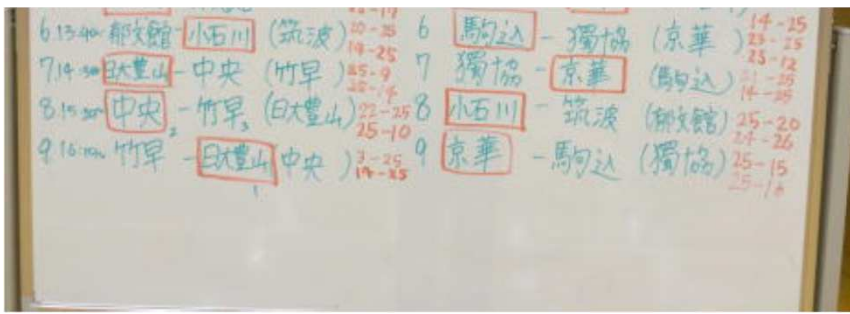 6 13:40 郁文館 - 小石川 (筑波) 20-25
19-25
7 14:30 日大豊山 - 中央 (竹早) 25-9
25-14
8 15:20 中央 - 竹早 (日大豊山) 22-25
25-10
2 3
9 16:10 竹早 - 日大豊山 (中央) 3-25
19-25
1
6 駒込 - 獨協 (京華) 14-25
23-25
7 獨協 - 京華 (駒込) 21-25
14-25
8 小石川 - 筑波 (郁文館) 25-20
24-26
9 京華 - 駒込 (獨協) 25-15
25-16